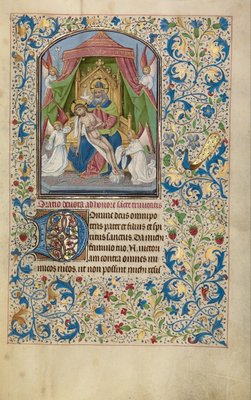 Oratio devota ad honorē sancte trinitatis
Domine deus omnipo
tens pater et filius et spi
ritus sanctus. Da michi
famulo tuo. N. victori
am contra omnes ini
micos meos. ut non possint michi resis